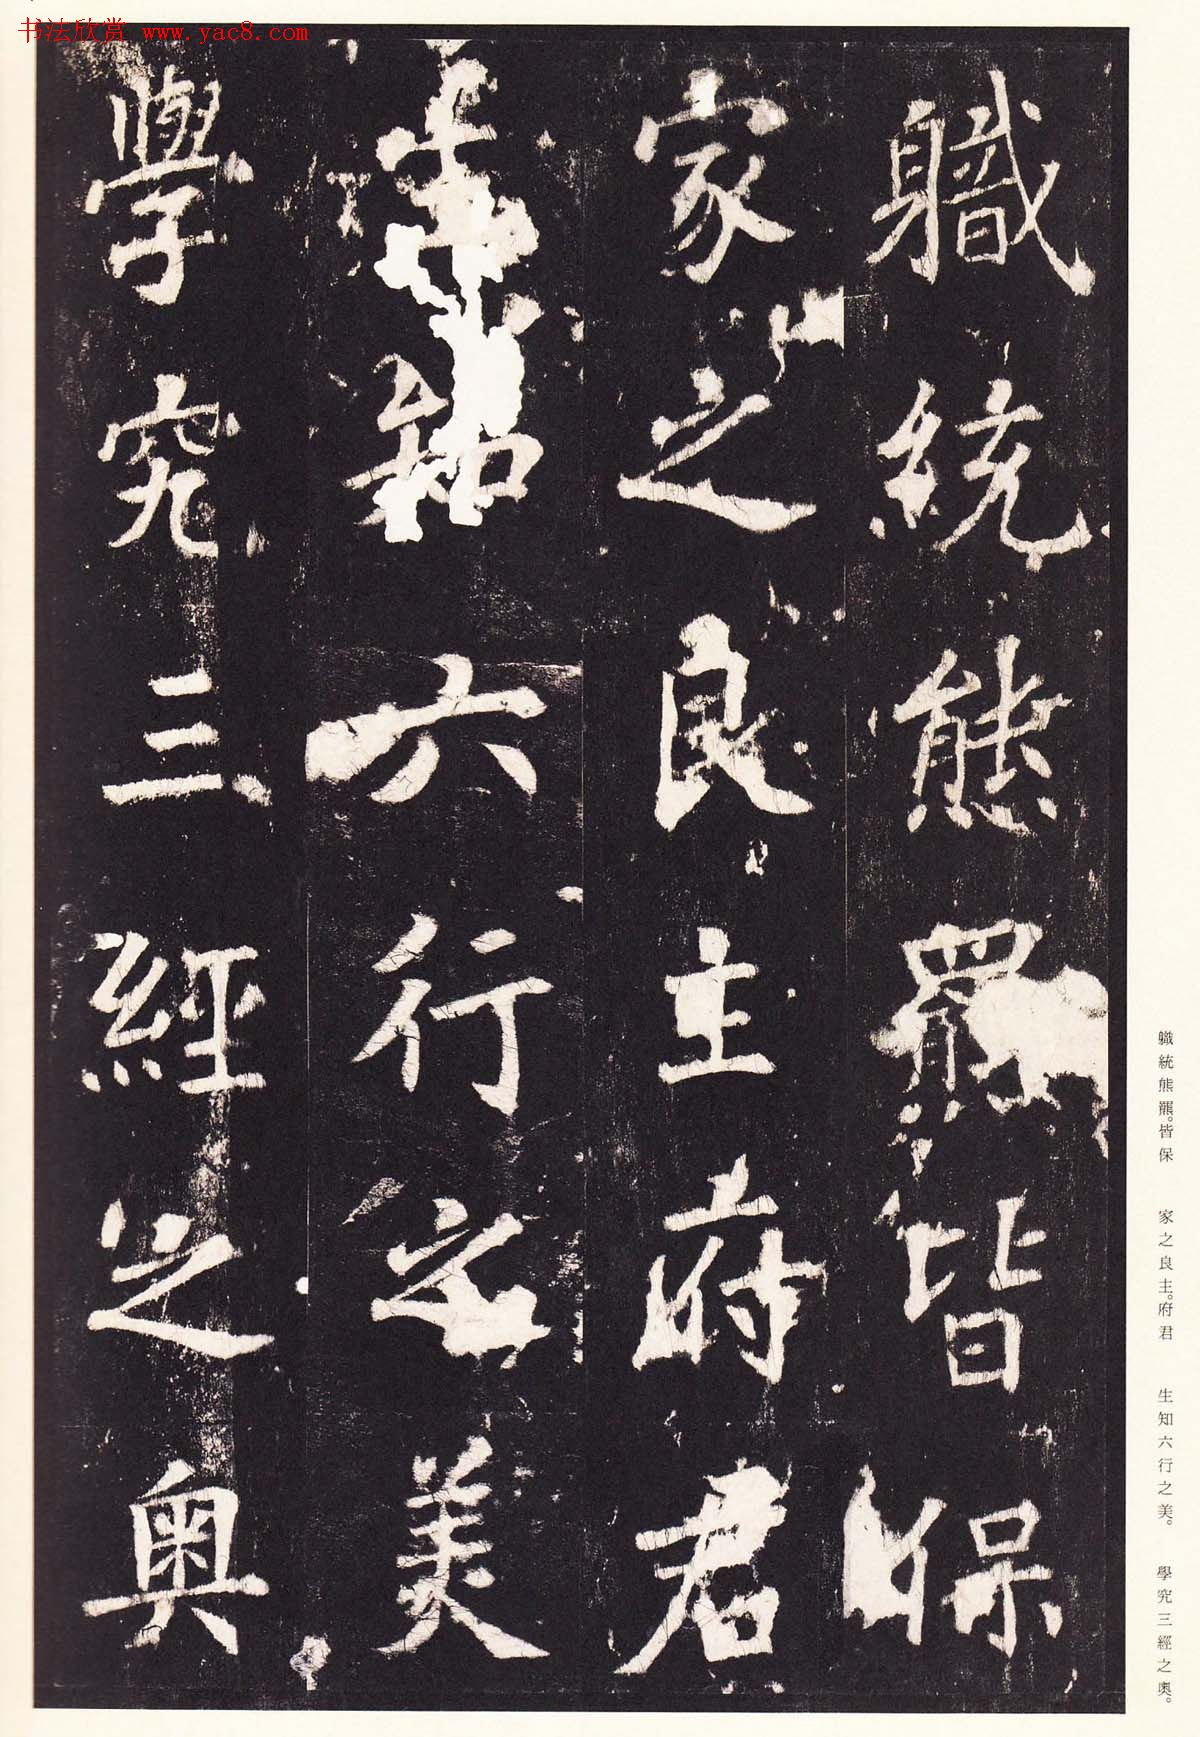 书法欣赏 www.yac8.com
軄統熊羆皆保
家之良主府君
生知六行之美
學究三經之奧
軄統熊羆。皆保 家之良主。府君 生知六行之美。 學究三經之奧。